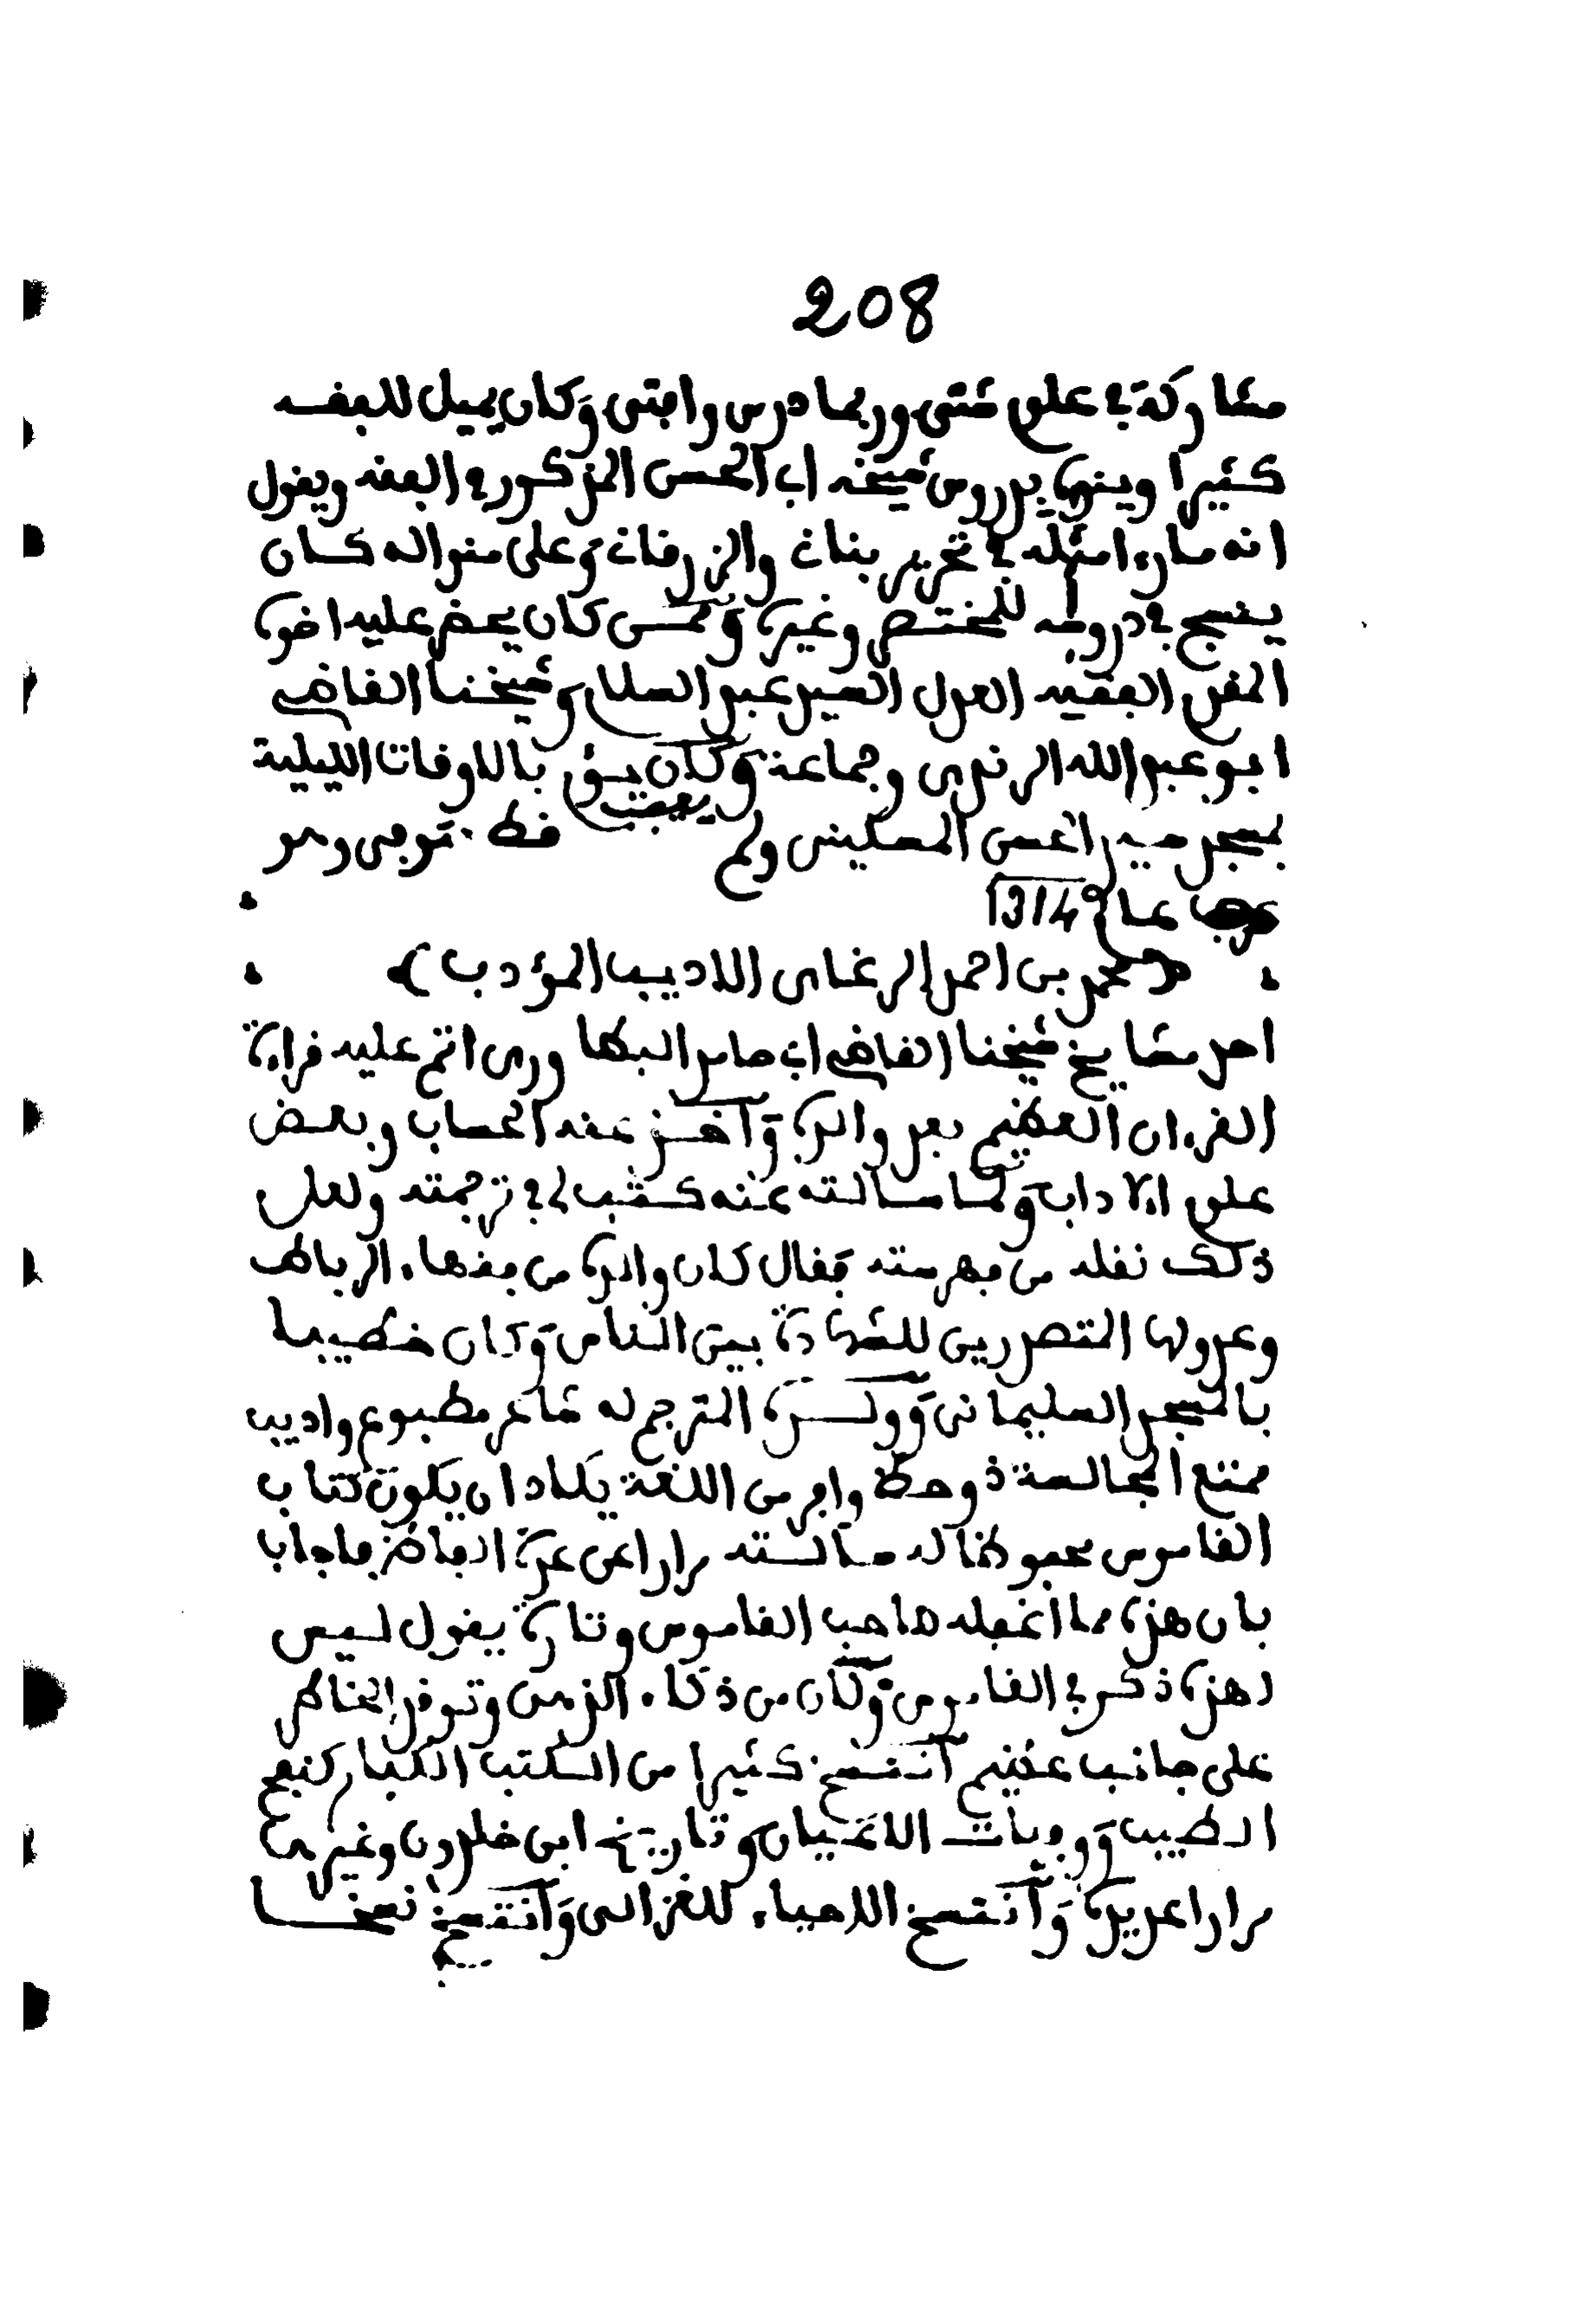 208
مشاركة في علوم شتى وربما درس وافتى وكان يميل للفقه
كثيرا وينوه بدروس شيخه ابي الحسن المذكور في الفقه ويقول
انه ما رءا مثله في تحرير بناني والزرقاني وعلى منواله كان
ينسج في دروسه للمختصر وغيره وممن كان يحضر عليه اخوه
المفتي الفقيه العدل السيد عبد السلام وشيخنا القاضي
ابو عبد الله الرندى وجماعة وكان يؤم بالاوقات الليلية
بمسجد سيد الغمى المسكينى ولم يعقب فط توفي رحمه
عام 1314
(محمد بن احمد الرغاى الاديب المؤدب)
احد مشايخ شيخنا القاضي ابي حامد البطاورى اتم عليه قراءة
القرءان العظيم بعد والده وأخذ عنه الحساب وبعض
علوم الاداب ولما سالته عنه كتب لي في ترجمته ولعل
ذلك نقله من فهرسته فقال كان والده من فقهاء الرباط
وعدولها المتصدرين للشهادة بين الناس وكان خطيبا
بالمسجد السليماني وولده المترجم له شاعر مطبوع واديب
ممتع المجالسة ذو حظ وافر من اللغة يكاد ان يكون كتاب
القاموس محفوظا له سالته مرارا عن عدة الفاظ فاجاب
بان هذه مما اغفله صاحب القاموس وتارة يقول ليس
لهذه ذكر في القاموس وكان من ذكاء الذهن وتوقد الخاطر
على جانب عظيم انتسخ كثيرا من الكتب الكبار كنفح
الطيب ووفيات الاعيان وتاريخ ابن خلدون وغيرها
مرارا عديدة وانتسخ الاحياء للغزالى وانتسخ نسخا